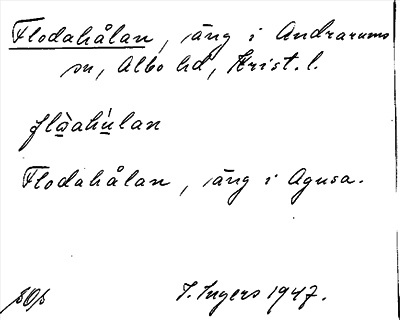 Flodahålan, äng i Andrarums
sn, Albo hd, Krist. l.
flòahùlan
Flodahålan, äng i Agusa.
I. Ingers 1947.